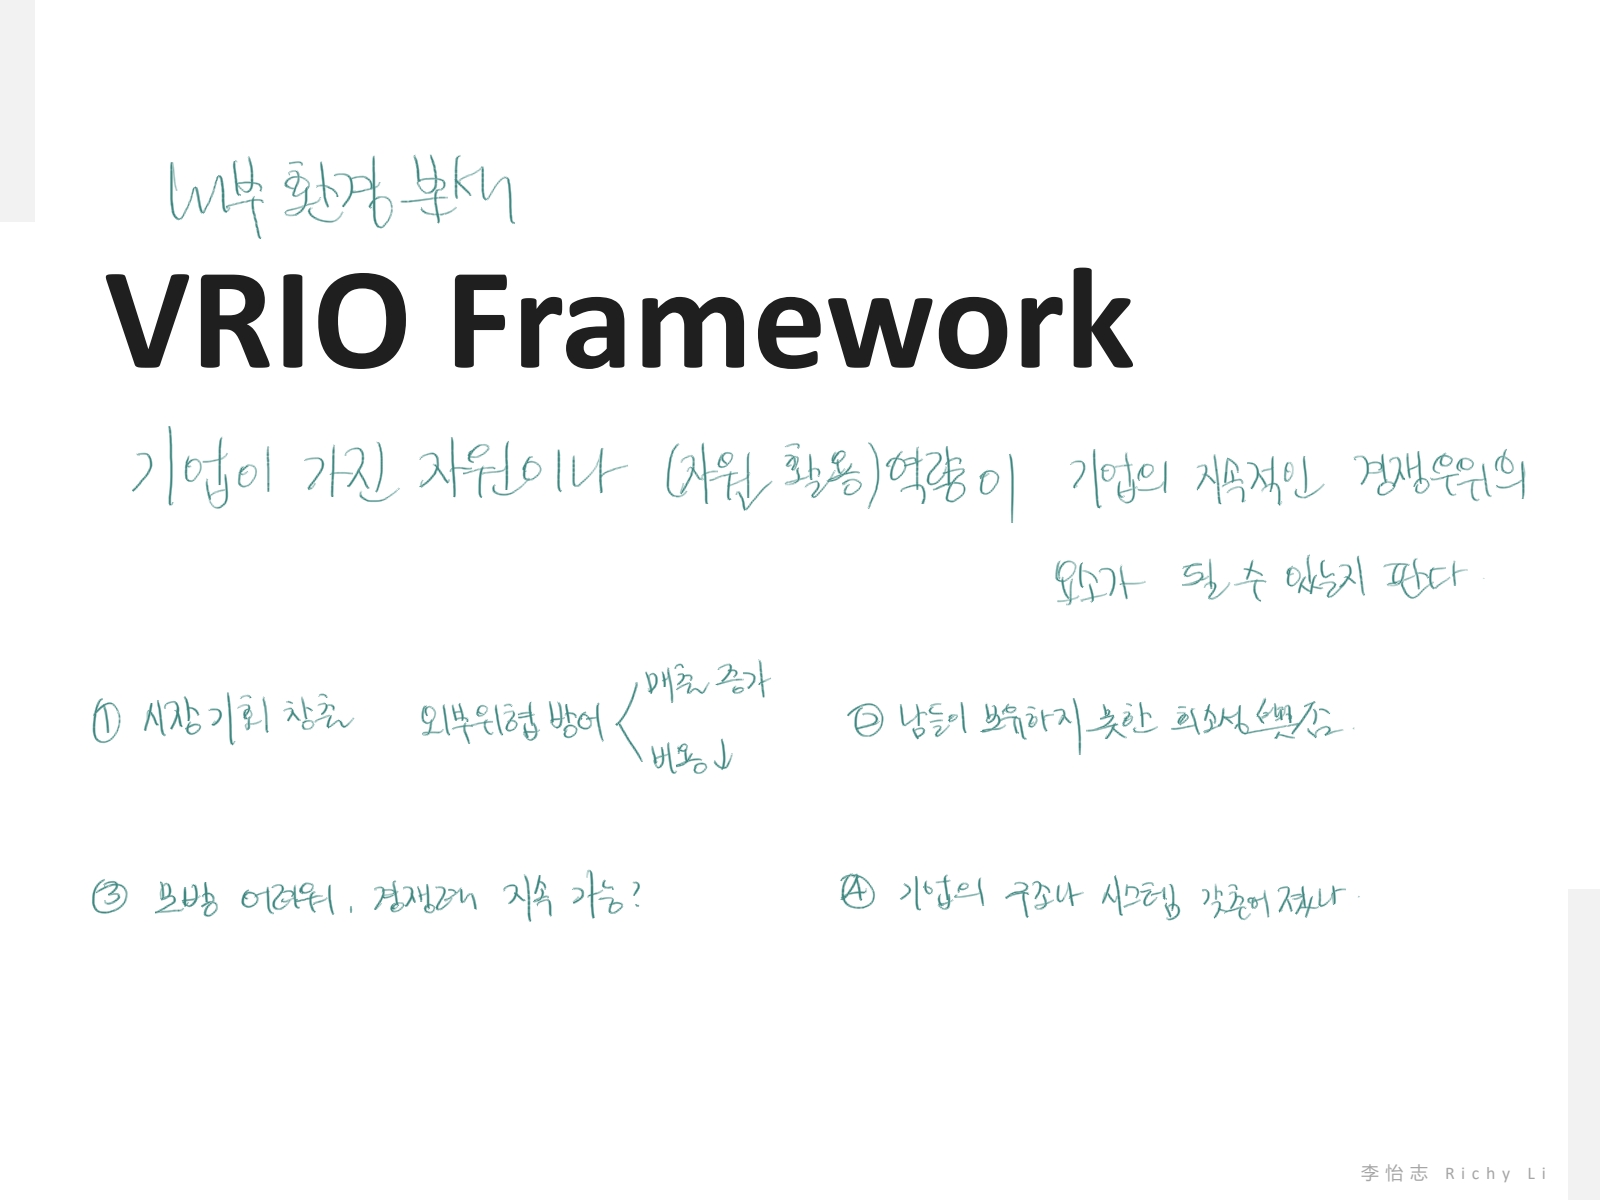 내부 환경 분석
VRIO Framework
기업이 가진 자원이나 (자원 활용)역량이 기업의 지속적인 경쟁우위의
요소가 될 수 있는지 판다
① 시장기회 창출 외부위협 방어 < 매출 증가
비용↓
② 남들이 보유하지 못한
③ 모방 어려워, 경쟁력 지속 가능?
④ 기업의 구조나 시스템 갖춰어 졌나
李怡志 Richy Li